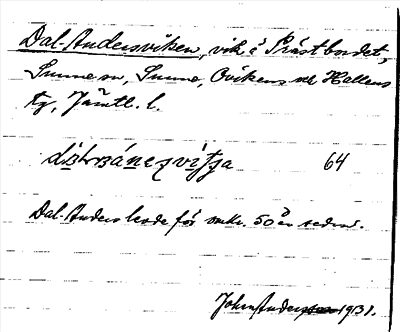 Dal-Andersviken, vik i Prästbordet,
Sunne sn, Sunne, Ovikens och Hallens
tg, Jämtl. l.
64
Dal-Anders levde för omkr. 50 år sedan.
John Andersson 1931.